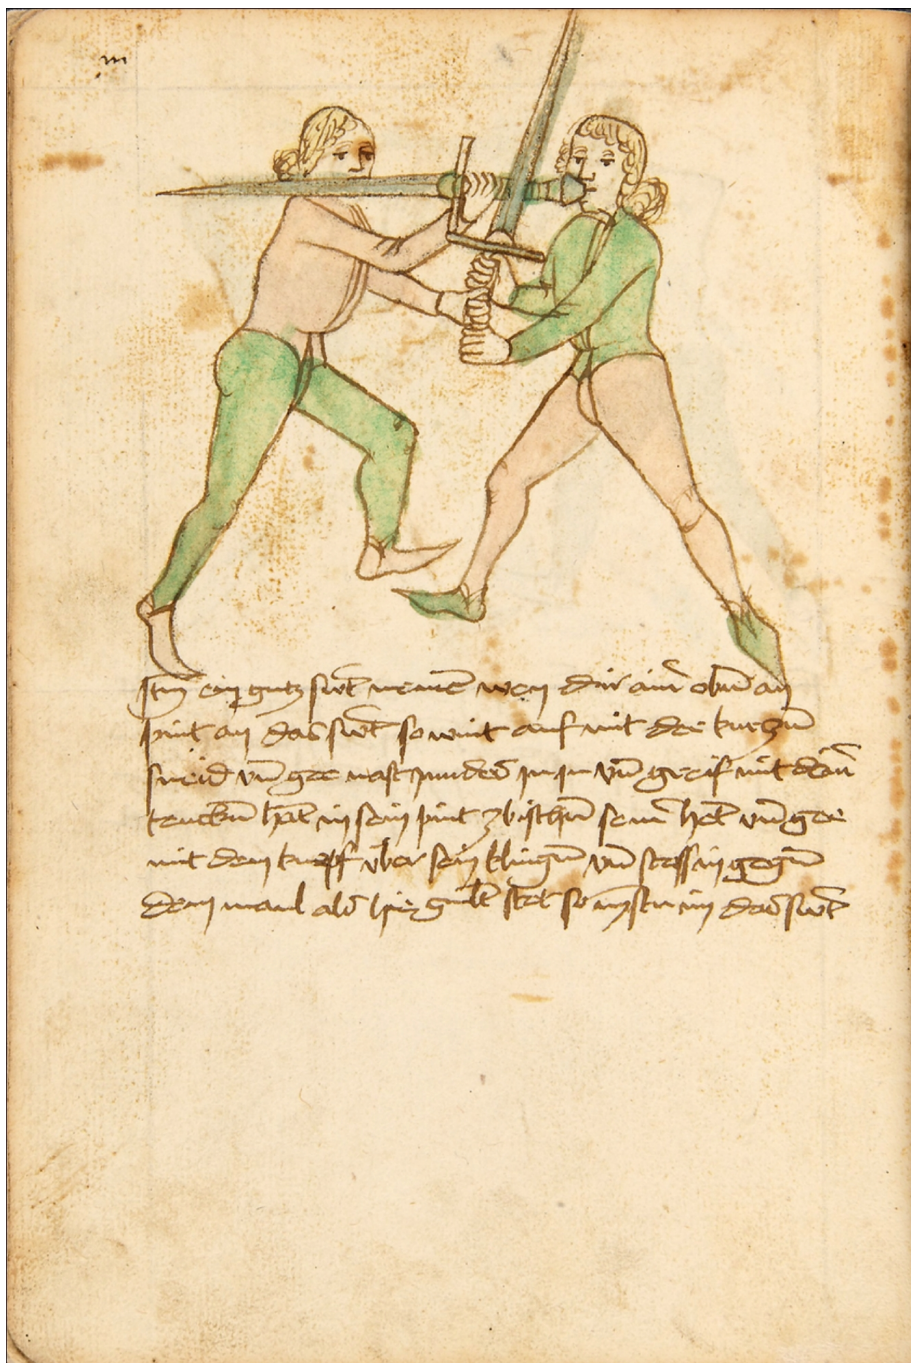 m
Itm ein gutz swt nemen wen dir ainr obn an
pint an das swt so wint auf mit der kurczn
sneid vn gee vast in vn greif mit deinr
tenckn hāt in sein pint zbischn sein het vn gee
mit dem knopf vber sein klingn vn stoss in gegn
dem maul als hie gmelt stet so nymstu im das swt